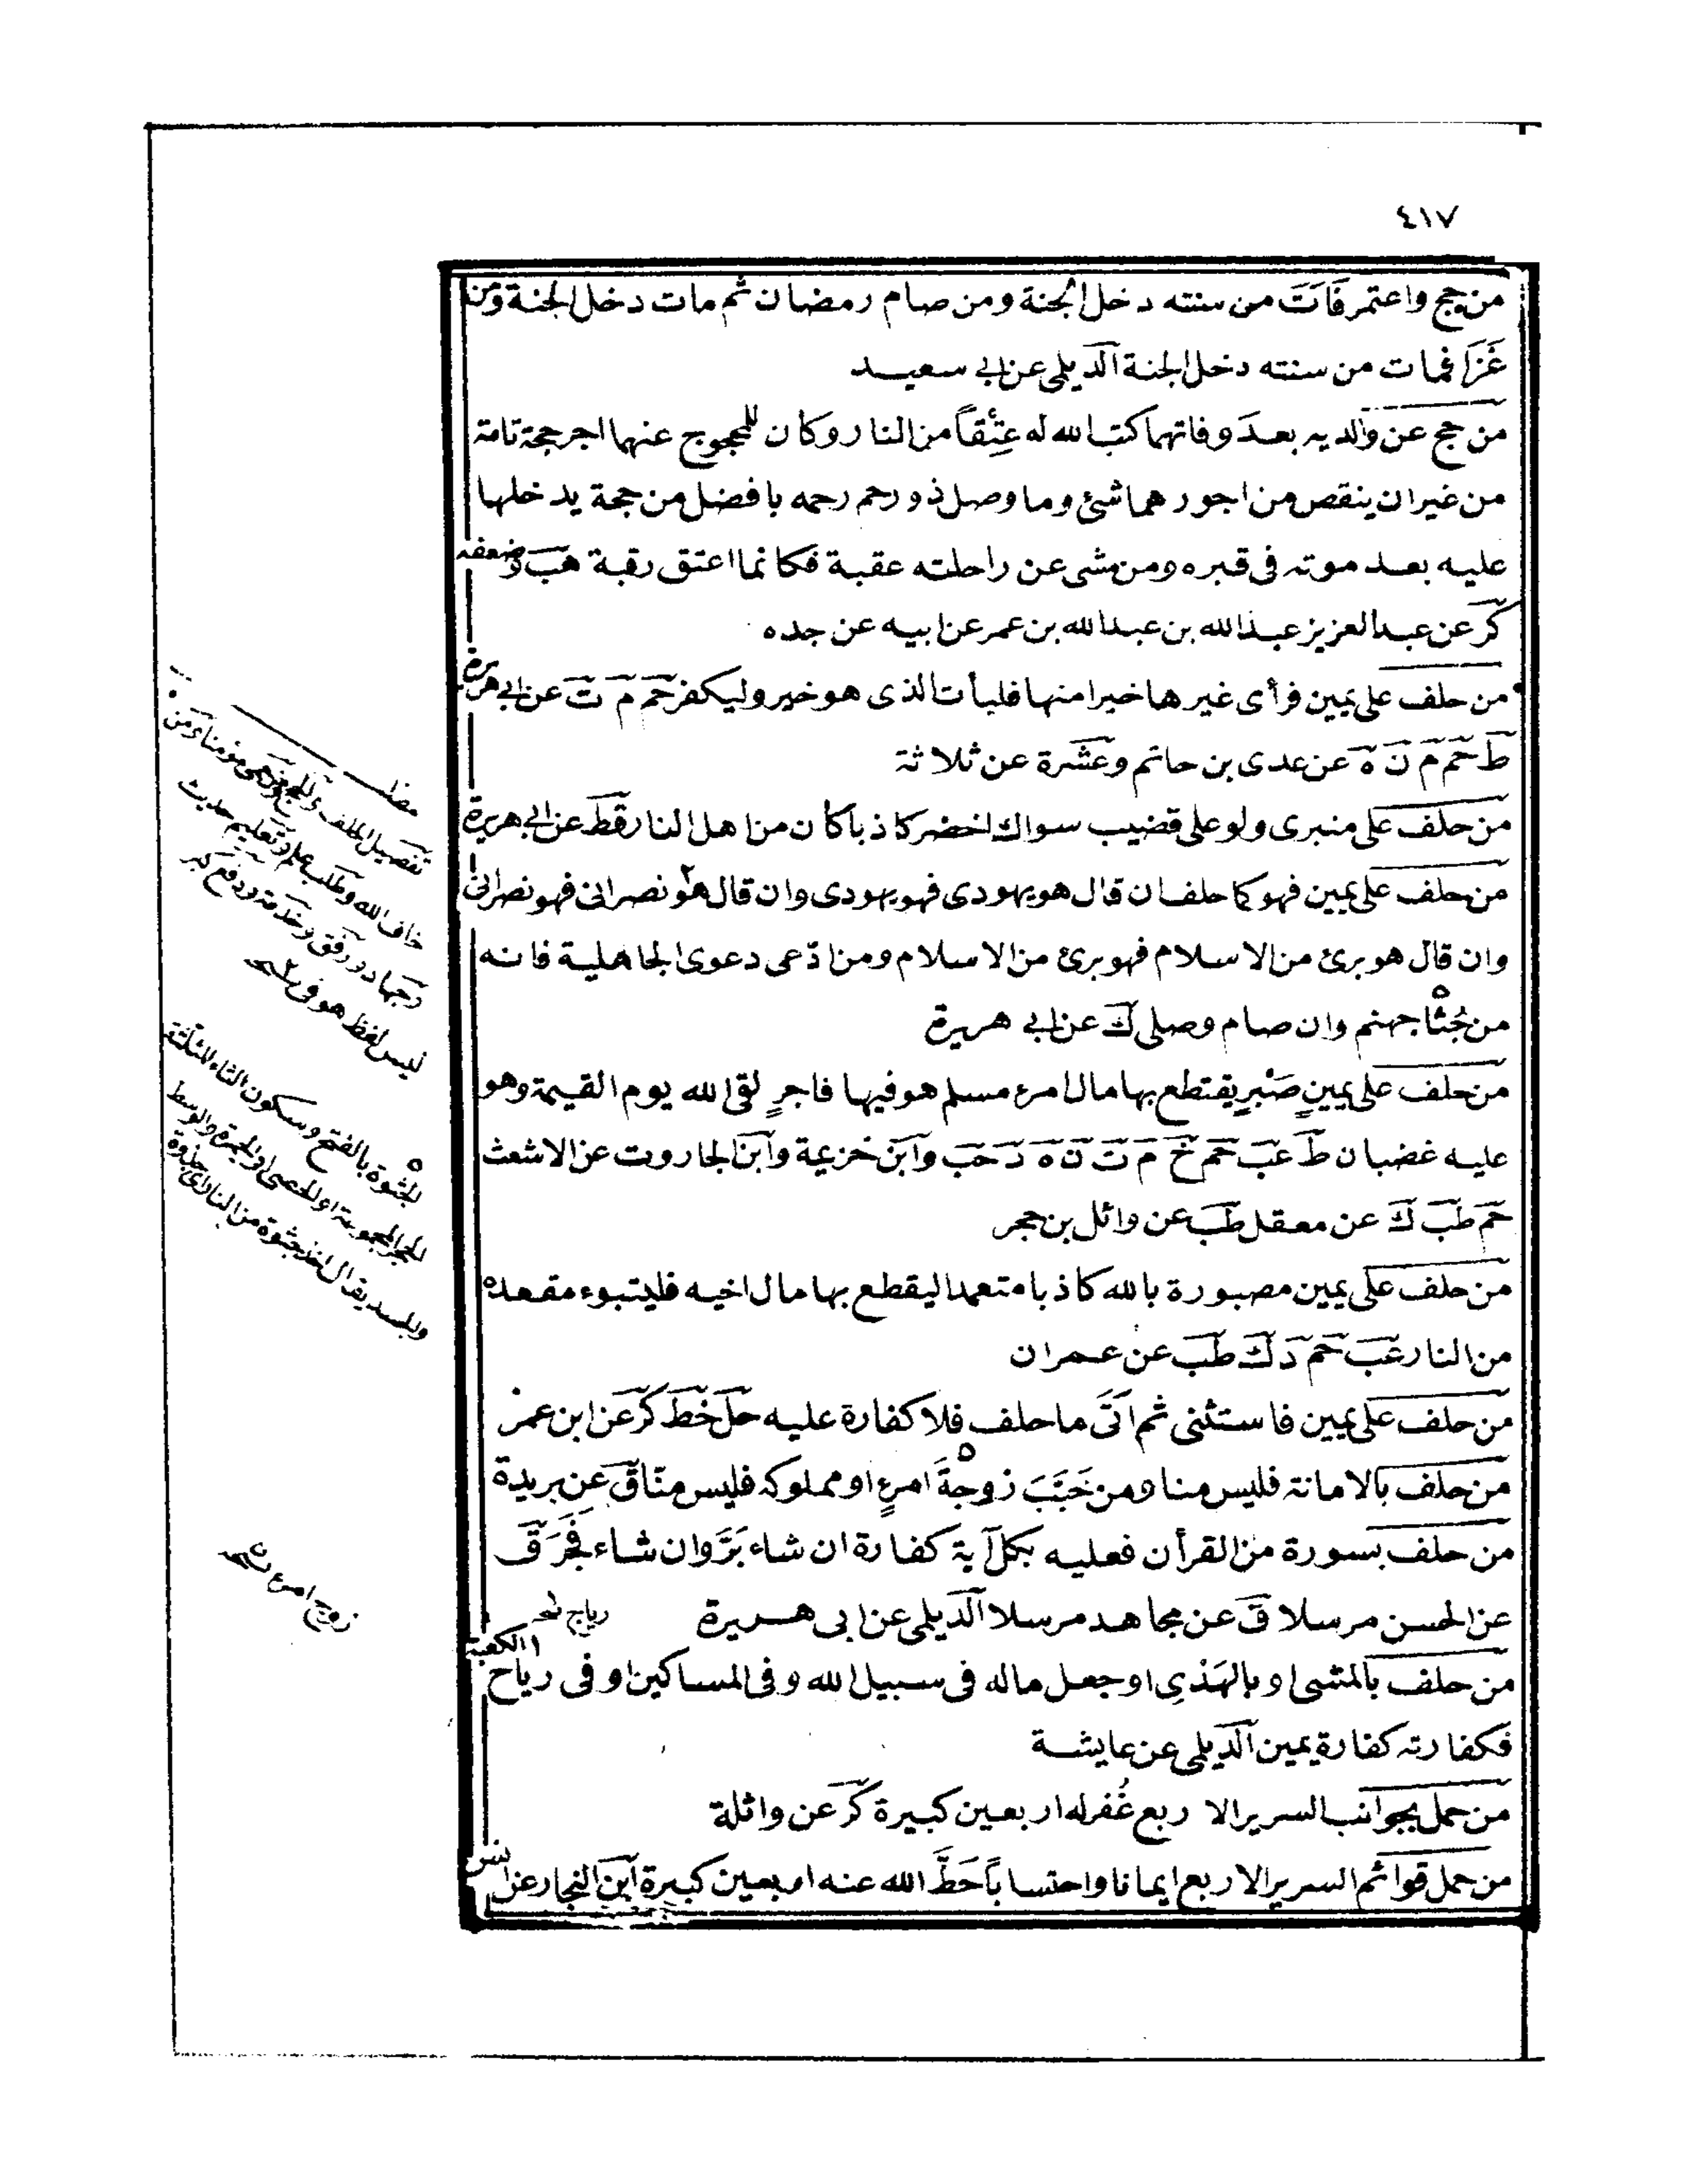 ٤١٧
من حج واعتمر فَمَاتَ من سنته دخل الجنة ومن صام رمضان ثم مات دخل الجنة ومن
غَزَا فمات من سنته دخل الجنة الديلمى عن ابى سعيد
من حج عن والديه بعد وفاتهما كتب الله له عِتْقاً من النار وكان للمحجوج عنهما اجر حجة تامة
من غير ان ينقص من اجورهما شئ وما وصل ذو رحم رحمه بافضل من حجة يدخلها
عليه بعد موته فى قبره ومن مشى عن راحلته عقبة فكانما اعتق رقبة هب وضعفه
كر عن عبد العزيز عبد الله بن عبد الله بن عمر عن ابيه عن جده
من حلف على يمين فرأى غيرها خيرا منها فليأت الذى هو خير وليكفر حم م ت عن ابى هريرة
ط حم م ن ه عن عدى بن حاتم وعشرة عن ثلاثة
من حلف على منبرى ولو على قضيب سواك اخضر كاذبا كان من اهل النار قط عن ابى هريرة
من حلف على يمين فهو كما حلف ان قال هو يهودى فهو يهودى وان قال هو نصرانى فهو نصرانى
وان قال هو برئ من الاسلام فهو برئ من الاسلام ومن ادّعى دعوى الجاهلية فانه
من جُثا جهنم وان صام وصلى ك عن ابى هريرة
من حلف على يمينٍ صَبْرٍ يقتطع بها مال امرء مسلم هو فيها فاجرٍ لقى الله يوم القيمة وهو
عليه غضبان ط عب حم خ م ت ن ه د حب وابن خزيمة وابن الجاروت عن الاشعث
حم طب ك عن معقل طب عن وائل بن حجر
من حلف على يمين مصبورة بالله كاذبا متعمدا ليقطع بها مال اخيه فليتبوء مقعده
من النار عب حم د ك طب عن عمران
من حلف على يمين فاستثنى ثم اَتَى ما حلف فلا كفارة عليه حل خط كر عن ابن عمر
من حلف بالامانة فليس منا ومن خَبَّبَ زوجةَ امرءٍ او مملوكه فليس منّا ق عن بريدة
من حلف بسورة من القرأن فعليه بكل آية كفارة ان شاء بَرَّ وان شاء فَجَرَ ق
عن الحسن مرسلا ق عن مجاهد مرسلا الديلمى عن ابى هريرة
رياج نخـ
من حلف بالمشى او بالهَدْىِ او جعل ماله فى سبيل الله وفى المساكين او فى رياح الكعبة
فكفارته كفارة يمين الديلمى عن عايشة
من حمل بجوانب السرير الاربع غُفر له اربعين كبيرة كر عن واثلة
من حمل قوائم السرير الاربع ايمانا واحتساباً حَطَّ الله عنه اربعين كبيرة ابن النجار عن انس
تفصيل الحلف والحج
خاف الله وطلب علم وتعليم حديث
وجهاد ورفق وخدمة ودفع كبر
ليس لفظ هو فى نسخـ
الجثوة بالفتح وسكون الثاء المثلثة
والجسد يقال اخذ جثوة من النار اى جذوة
زوج امرء نسخـ